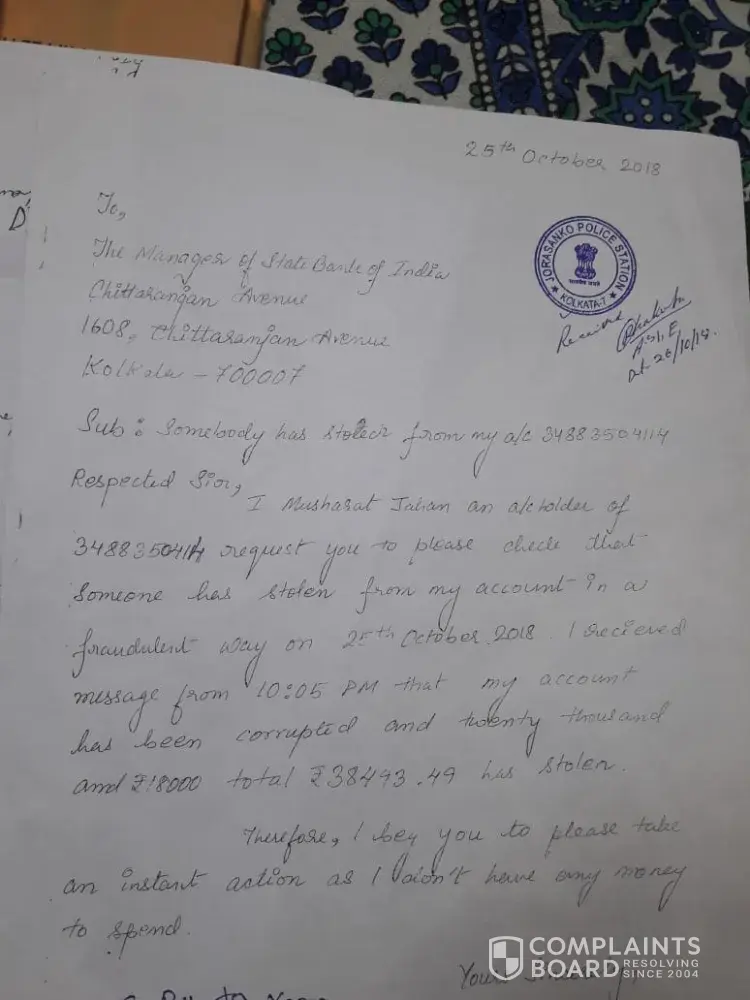 25th October 2018
To,
The Manager of State Bank of India
Chittaranjan Avenue
1608, Chittaranjan Avenue
Kolkata - 700007
JORASANKO POLICE STATION
★ KOLKATA-7 ★
Received
A.S.I, E
dt. 26/10/18.
Sub: Somebody has stolen from my a/c 34883504114
Respected Sior,
I Musharat Jahan an a/c holder of
34883504114 request you to please check that
someone has stolen from my account in a
fraudulent way on 25th October 2018. I recieved
message from 10:05 PM that my account
has been corrupted and twenty thousand
and ₹18000 total ₹38493.49 has stolen.
Therefore, I beg you to please take
an instant action as I don't have any money
to spend.
Yours
COMPLAINTS
BOARD RESOLVING
SINCE 2004